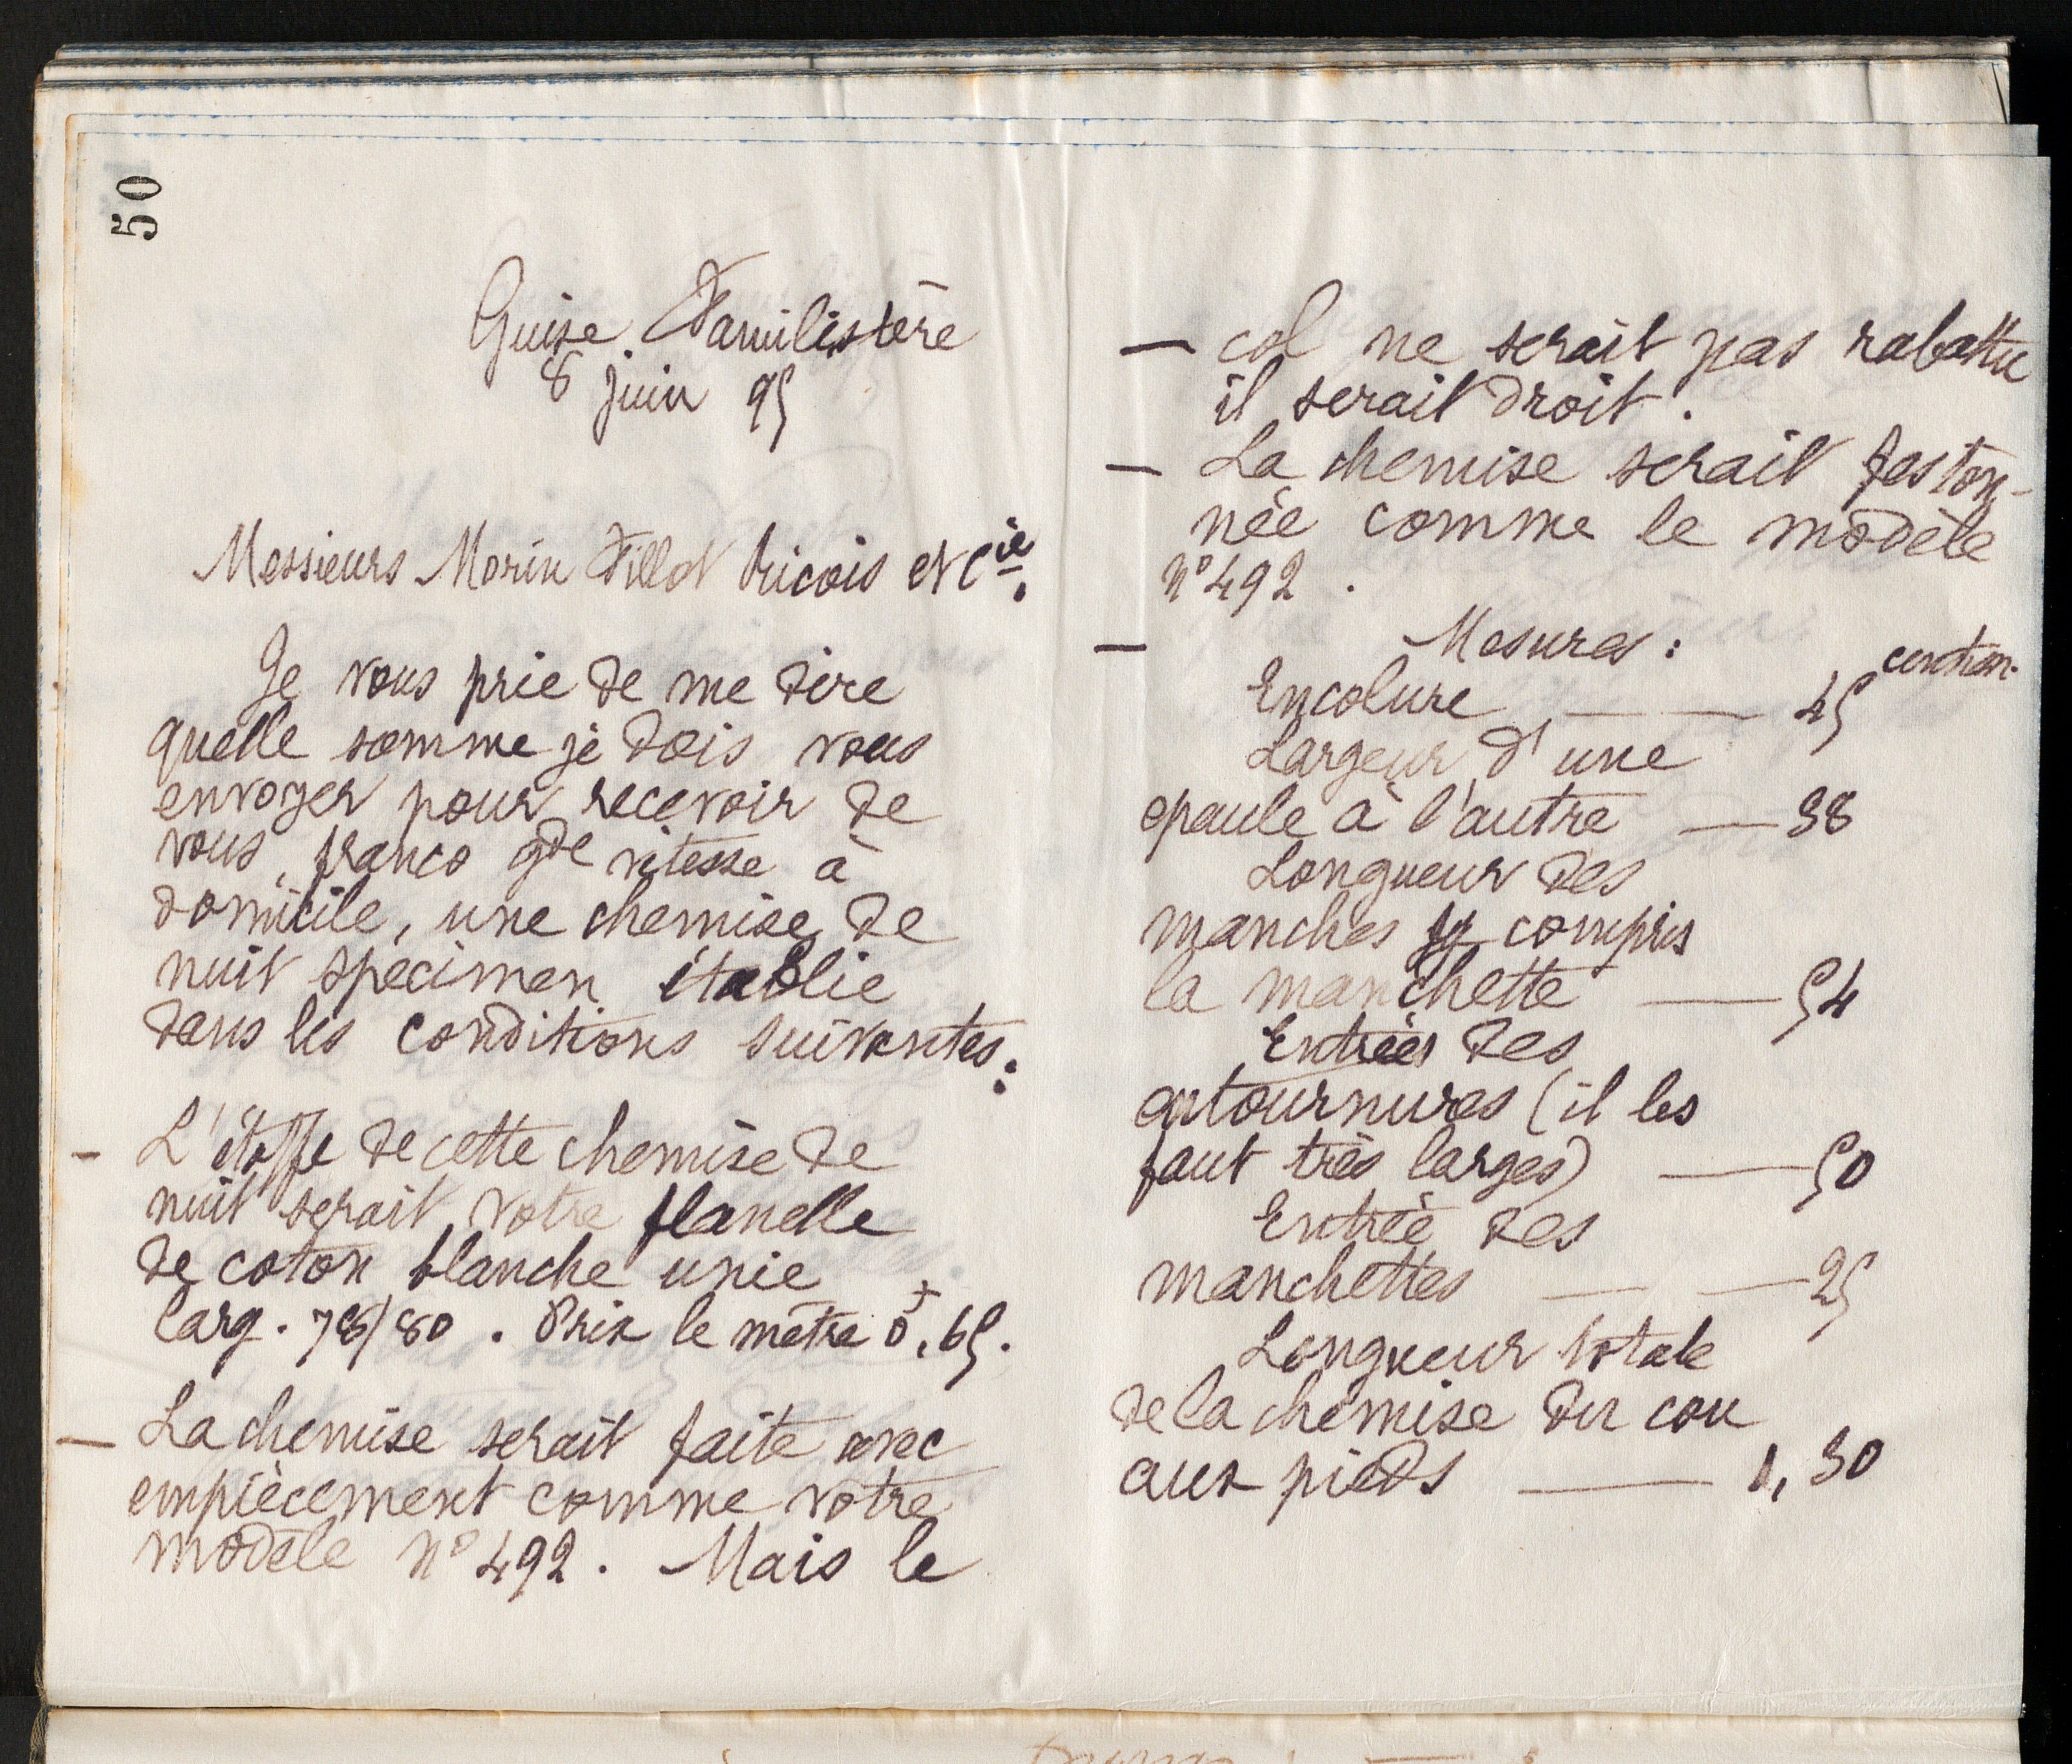 50
Guise Familistère
8 juin 95
Messieurs Morin Fillot Ricois et Cie.
Je vous prie de me dire
quelle somme je dois vous
envoyer pour recevoir de
vous, franco gde vitesse à
domicile, une chemise de
nuit specimen établie
dans les conditions suivantes :
- L'étoffe de cette chemise de
nuit serait votre flanelle
de coton blanche unie
larg. 78/80. Prix le mètre 0f,65.
— La chemise serait faite avec
empiècement comme votre
modèle n° 492. Mais le
— col ne serait pas rabattu
il serait droit.
— La chemise serait feston-
née comme le modèle
n° 492.
— Mesures :
centim.
Encolure — — 45
Largeur d'une
epaule à l'autre — 38
Longueur des
manches y compris
la manchette — 54
Entrées des
entournures (il les
faut très larges) — 50
Entrée des
manchettes — — 25
Longueur totale
de la chemise du cou
aux pieds — 1,30